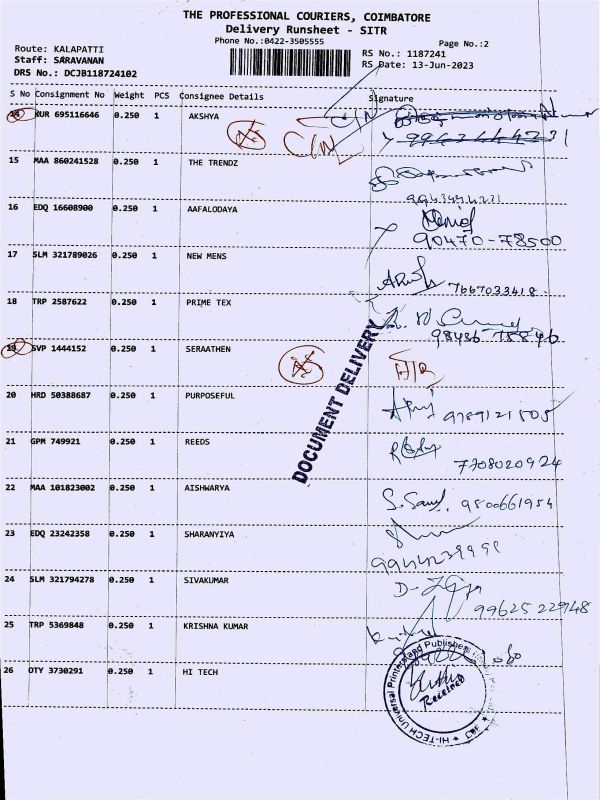 THE PROFESSIONAL COURIERS, COIMBATORE
Delivery Runsheet - SITR
Phone No.:0422-3505555
Page No.:2
Route: KALAPATTI
Staff: SARAVANAN
DRS No.: DCJB118724102
RS No.: 1187241
RS Date: 13-Jun-2023
S No Consignment No Weight PCS Consignee Details Signature
14 KUR 695116646 0.250 1 AKSHYA C/N
C/N
15 MAA 860241528 0.250 1 THE TRENDZ
16 EDQ 16608900 0.250 1 AAFALODAYA
90470-78500
17 SLM 321789026 0.250 1 NEW MENS
7667033418
18 TRP 2587622 0.250 1 PRIME TEX
19 SVP 1444152 0.250 1 SERAATHEN
DOCUMENT DELIVERY
20 HRD 50388687 0.250 1 PURPOSEFUL
9789121505
21 GPM 749921 0.250 1 REEDS
7708020924
22 MAA 101823002 0.250 1 AISHWARYA
9500661954
23 EDQ 23242358 0.250 1 SHARANYIYA
24 SLM 321794278 0.250 1 SIVAKUMAR
99625 22948
25 TRP 5369848 0.250 1 KRISHNA KUMAR
26 OTY 3730291 0.250 1 HI TECH
HI-TECH Universal Printers and Publishers
RECEIVED